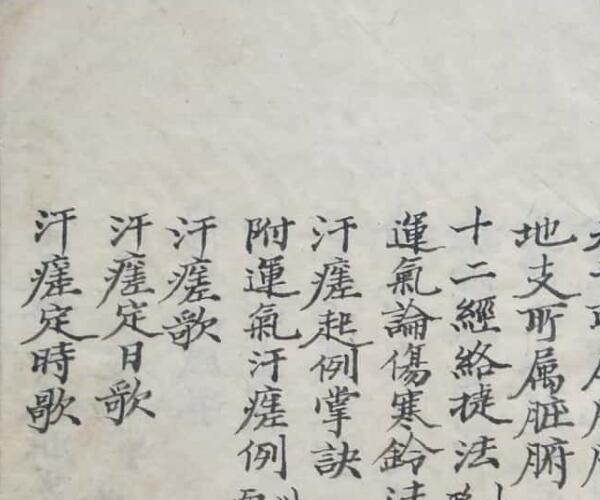 地支所属脏腑
十二經絡捷法
運氣論傷寒鈴法
汗瘥起例掌訣
附運氣汗瘥例
汗瘥歌
汗瘥定日歌
汗瘥定時歌